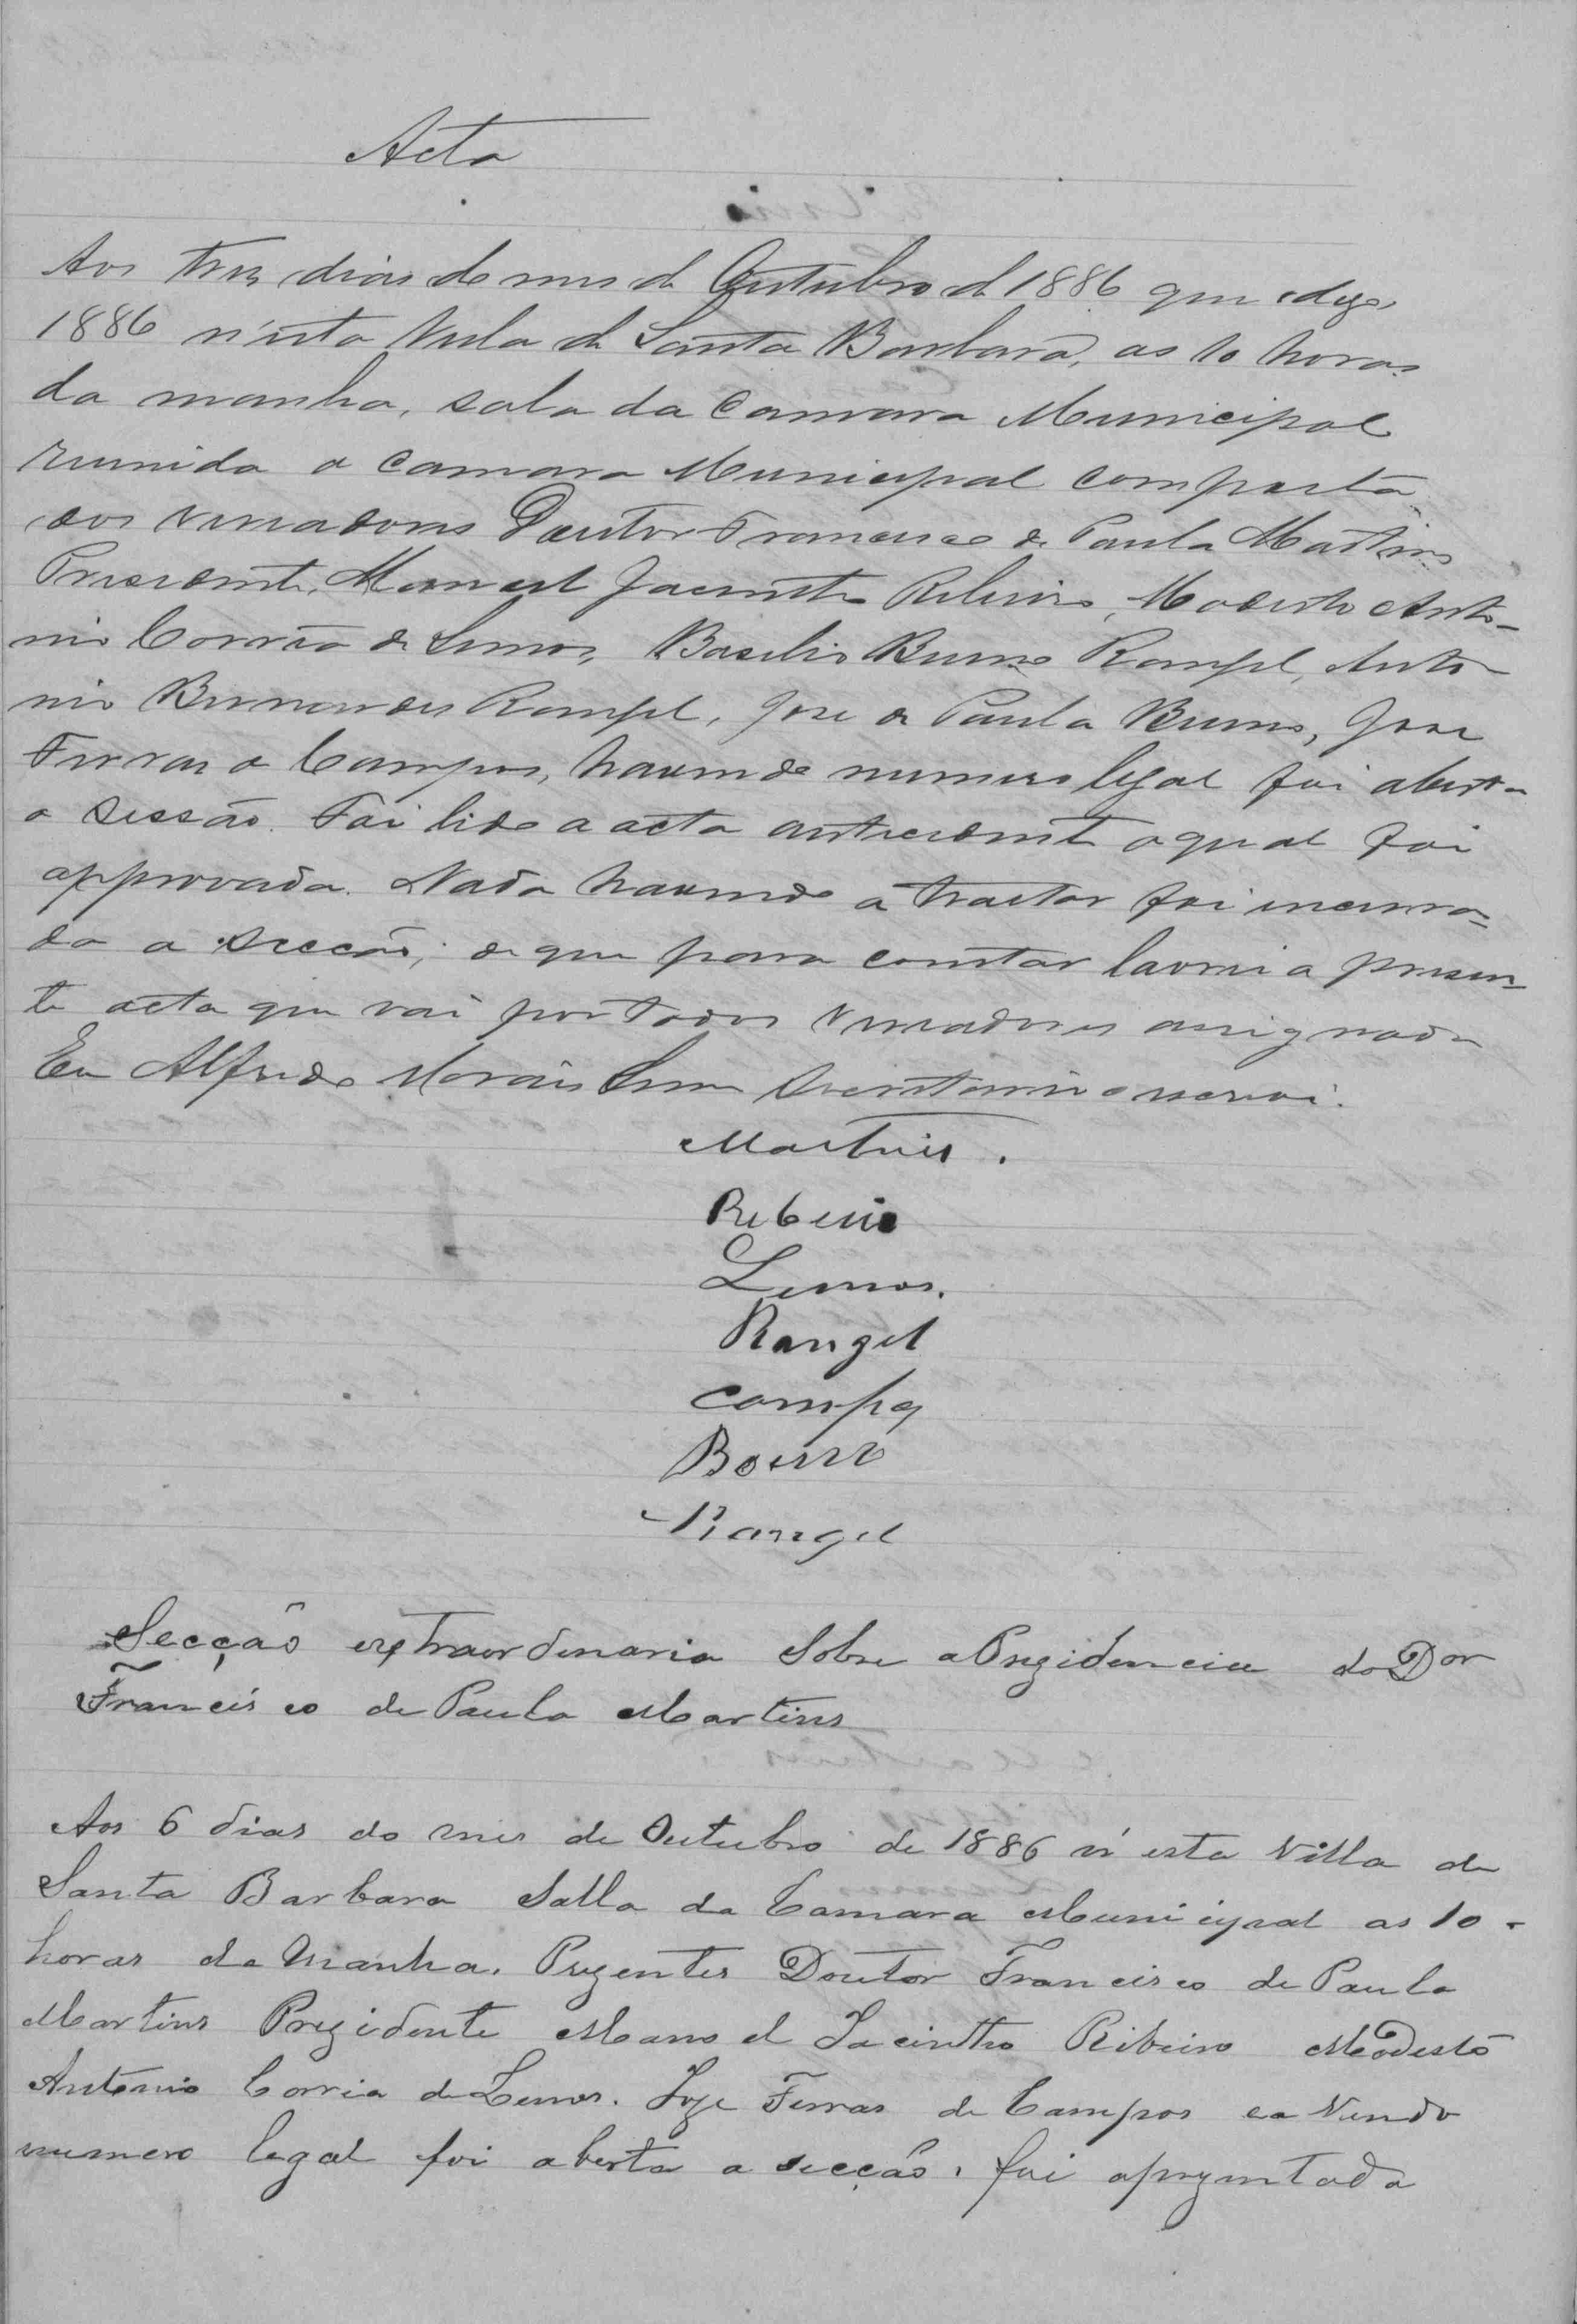 Acta
Aos tres dias do mes de Outubro de 1886 que digo
1886 n'esta Villa de Santa Barbara, as 10 horas
da manha, sala da Camara Municipal
reunida a Camara Municipal composta
dos vereadores Doutor Francisco de Paula Martins
Presidente, Manoel Jacintho Ribeiro, Modesto Anto-
nio Corrêa de Lemos, Basilio Bueno Rangel, Anto-
nio Bernardes Rangel, Jose de Paula Bueno, Jose
Ferras de Campos, havendo numero legal foi aberta
a sessão. Foi lida a acta antecedente a qual foi
approvada. Nada havendo a tractar foi encerra=
da a secção; de que para constar lavrei a presen=
te acta que vai por todos vereadores assignada
Eu Alfredo Morais Secretario o escrevi.
Martins.
Ribeiro
Lemos.
Rangel
Campos
Bueno
Rangel
Secção extraordenaria sobre a Prezidencia do Dor
Francisco de Paula Martins
Aos 6 dias do mes de Outubro de 1886 n'esta Villa de
Santa Barbara Salla da Camara Municipal as 10
horas da Manha. Prezentes Doutor Francisco de Paula
Martins Prezidente Manoel Jacintho Ribeiro Modesto
Antonio Corria de Lemos. Joze Ferras de Campos ea Vendo
numero legal foi aberta a secção. foi aprezentada